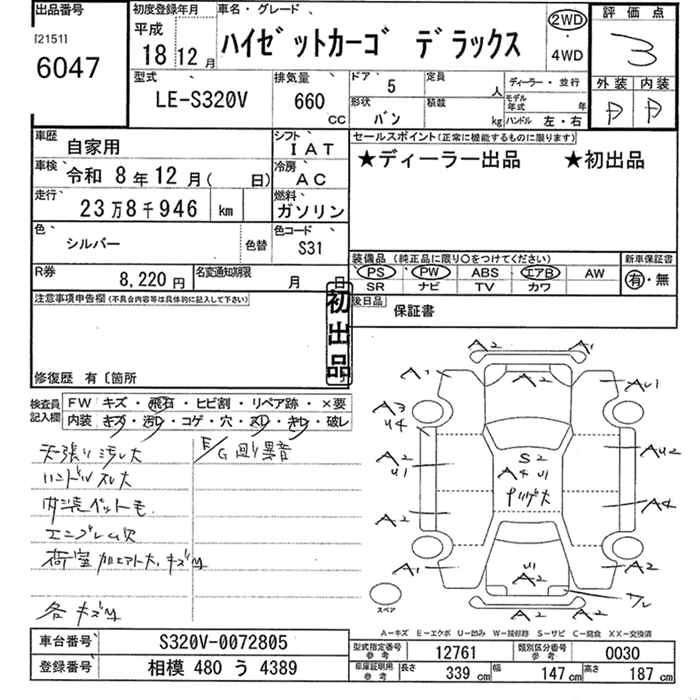 出品番号
[2151]
6047
初度登録年月
平成
18 12 月
車名・グレード
ハイゼットカーゴ デラックス
2WD
・
4WD
評価点
3
外装 内装
型式
LE-S320V
排気量
660
CC
ドア 5
定員 人
形状 バン
積載 kg
ディーラー・並行
モデル年式 年
ハンドル 左・右
車歴 自家用
シフト IAT
車検 令和 8 年 12 月 ( 日)
冷房 AC
走行 23 万 8 千 946 km
燃料 ガソリン
色 シルバー 色替
色コード S31
R券 8,220 円
名変通知期限 月 日
セールスポイント(正常に機能するものに限ります)
★ディーラー出品 ★初出品
装備品 (純正品に限り○をつけてください)
新車保証書
PS PW ABS エアB AW
有・無
SR ナビ TV カワ
後日品 保証書
注意事項申告欄 (不具合内容等は具体的に記入して下さい)
初出品
修復歴 有 〔箇所
検査員記入欄
FW キズ・飛石・ヒビ割・リペア跡・×要
内装 キズ・汚レ・コゲ・穴・スレ・キレ・破レ
天張り汚レ大
ハンドルスレ大
内装ペット毛
エンブレム欠
荷室加工アト大、キズ凹
各キズ凹
E/G 異音
A2 A1
A1 A2 AU1
A3
U4
S2
A4 U1
AU2
A2
U1
A2 A4
A1 U1 A2
A2
A2
スペア
A－キズ E－エクボ U－凹み W－補修跡 S－サビ C－腐食 XX－交換済
車台番号 S320V-0072805
登録番号 相模 480 う 4389
型式指定番号 参考 12761
類別区分番号 参考 0030
車庫証明用 参考
長さ 339 cm
幅 147 cm
高さ 187 cm